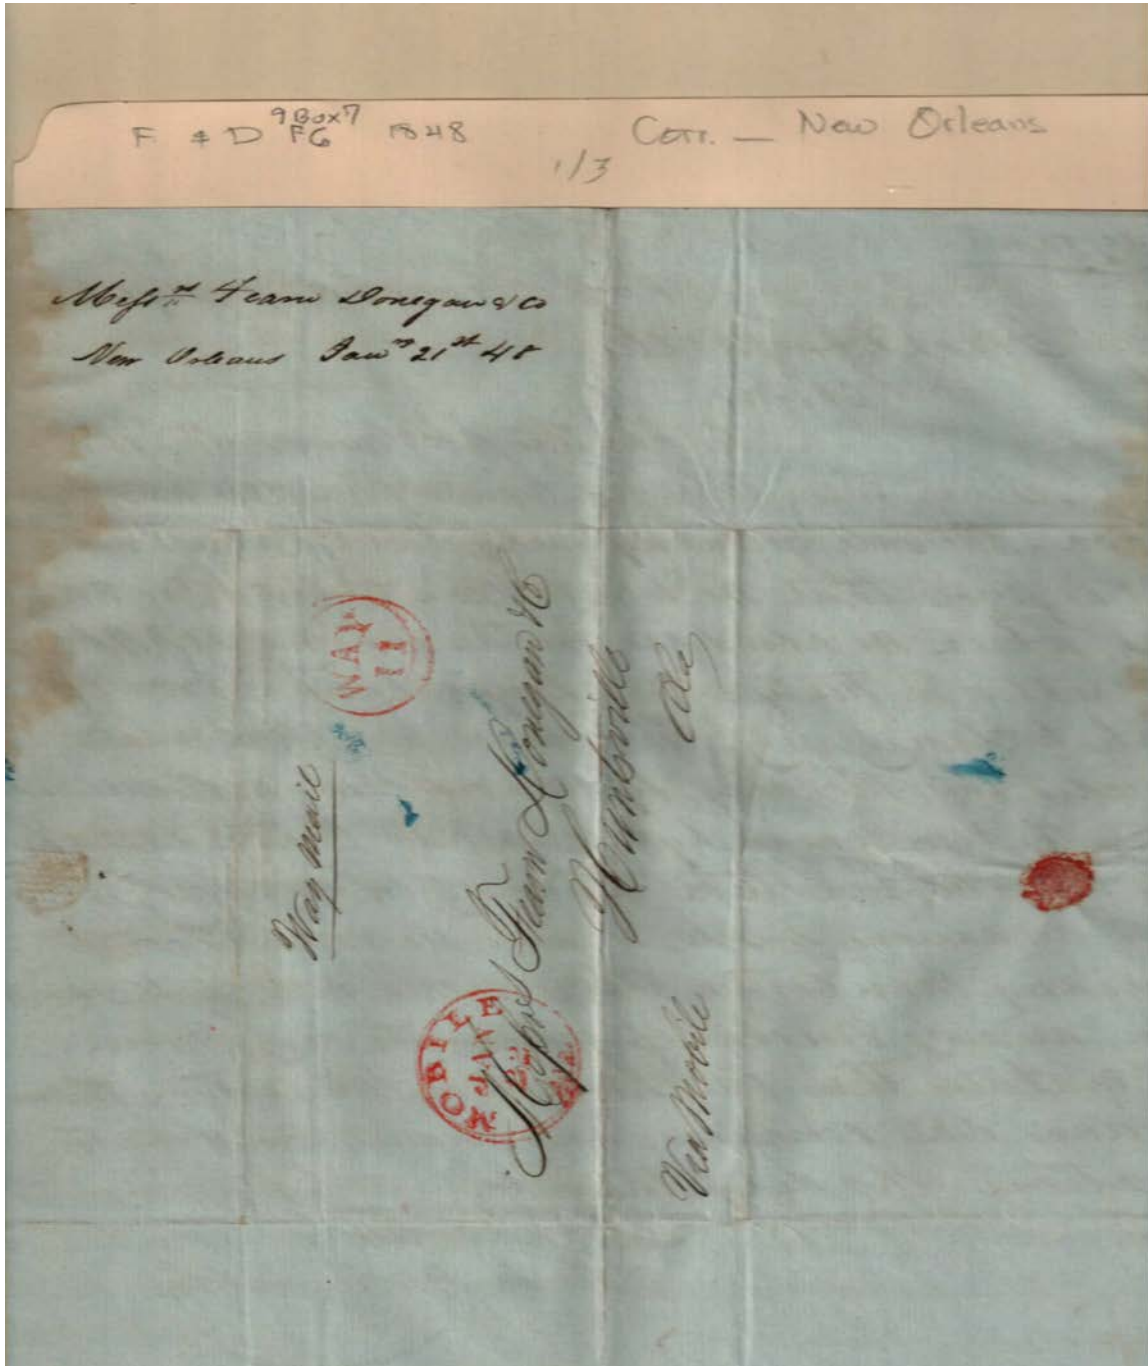 F & D 9 Box 7 F6 1848 Corr. — New Orleans
1/3
Messrs Fearn Donegan & Co
New Orleans Jany 21st 48
WAY
11
Way Mail
Messrs Fearn Donegan & Co
Huntsville
Ala
MOBILE
JAN
Ala.
Via Mobile